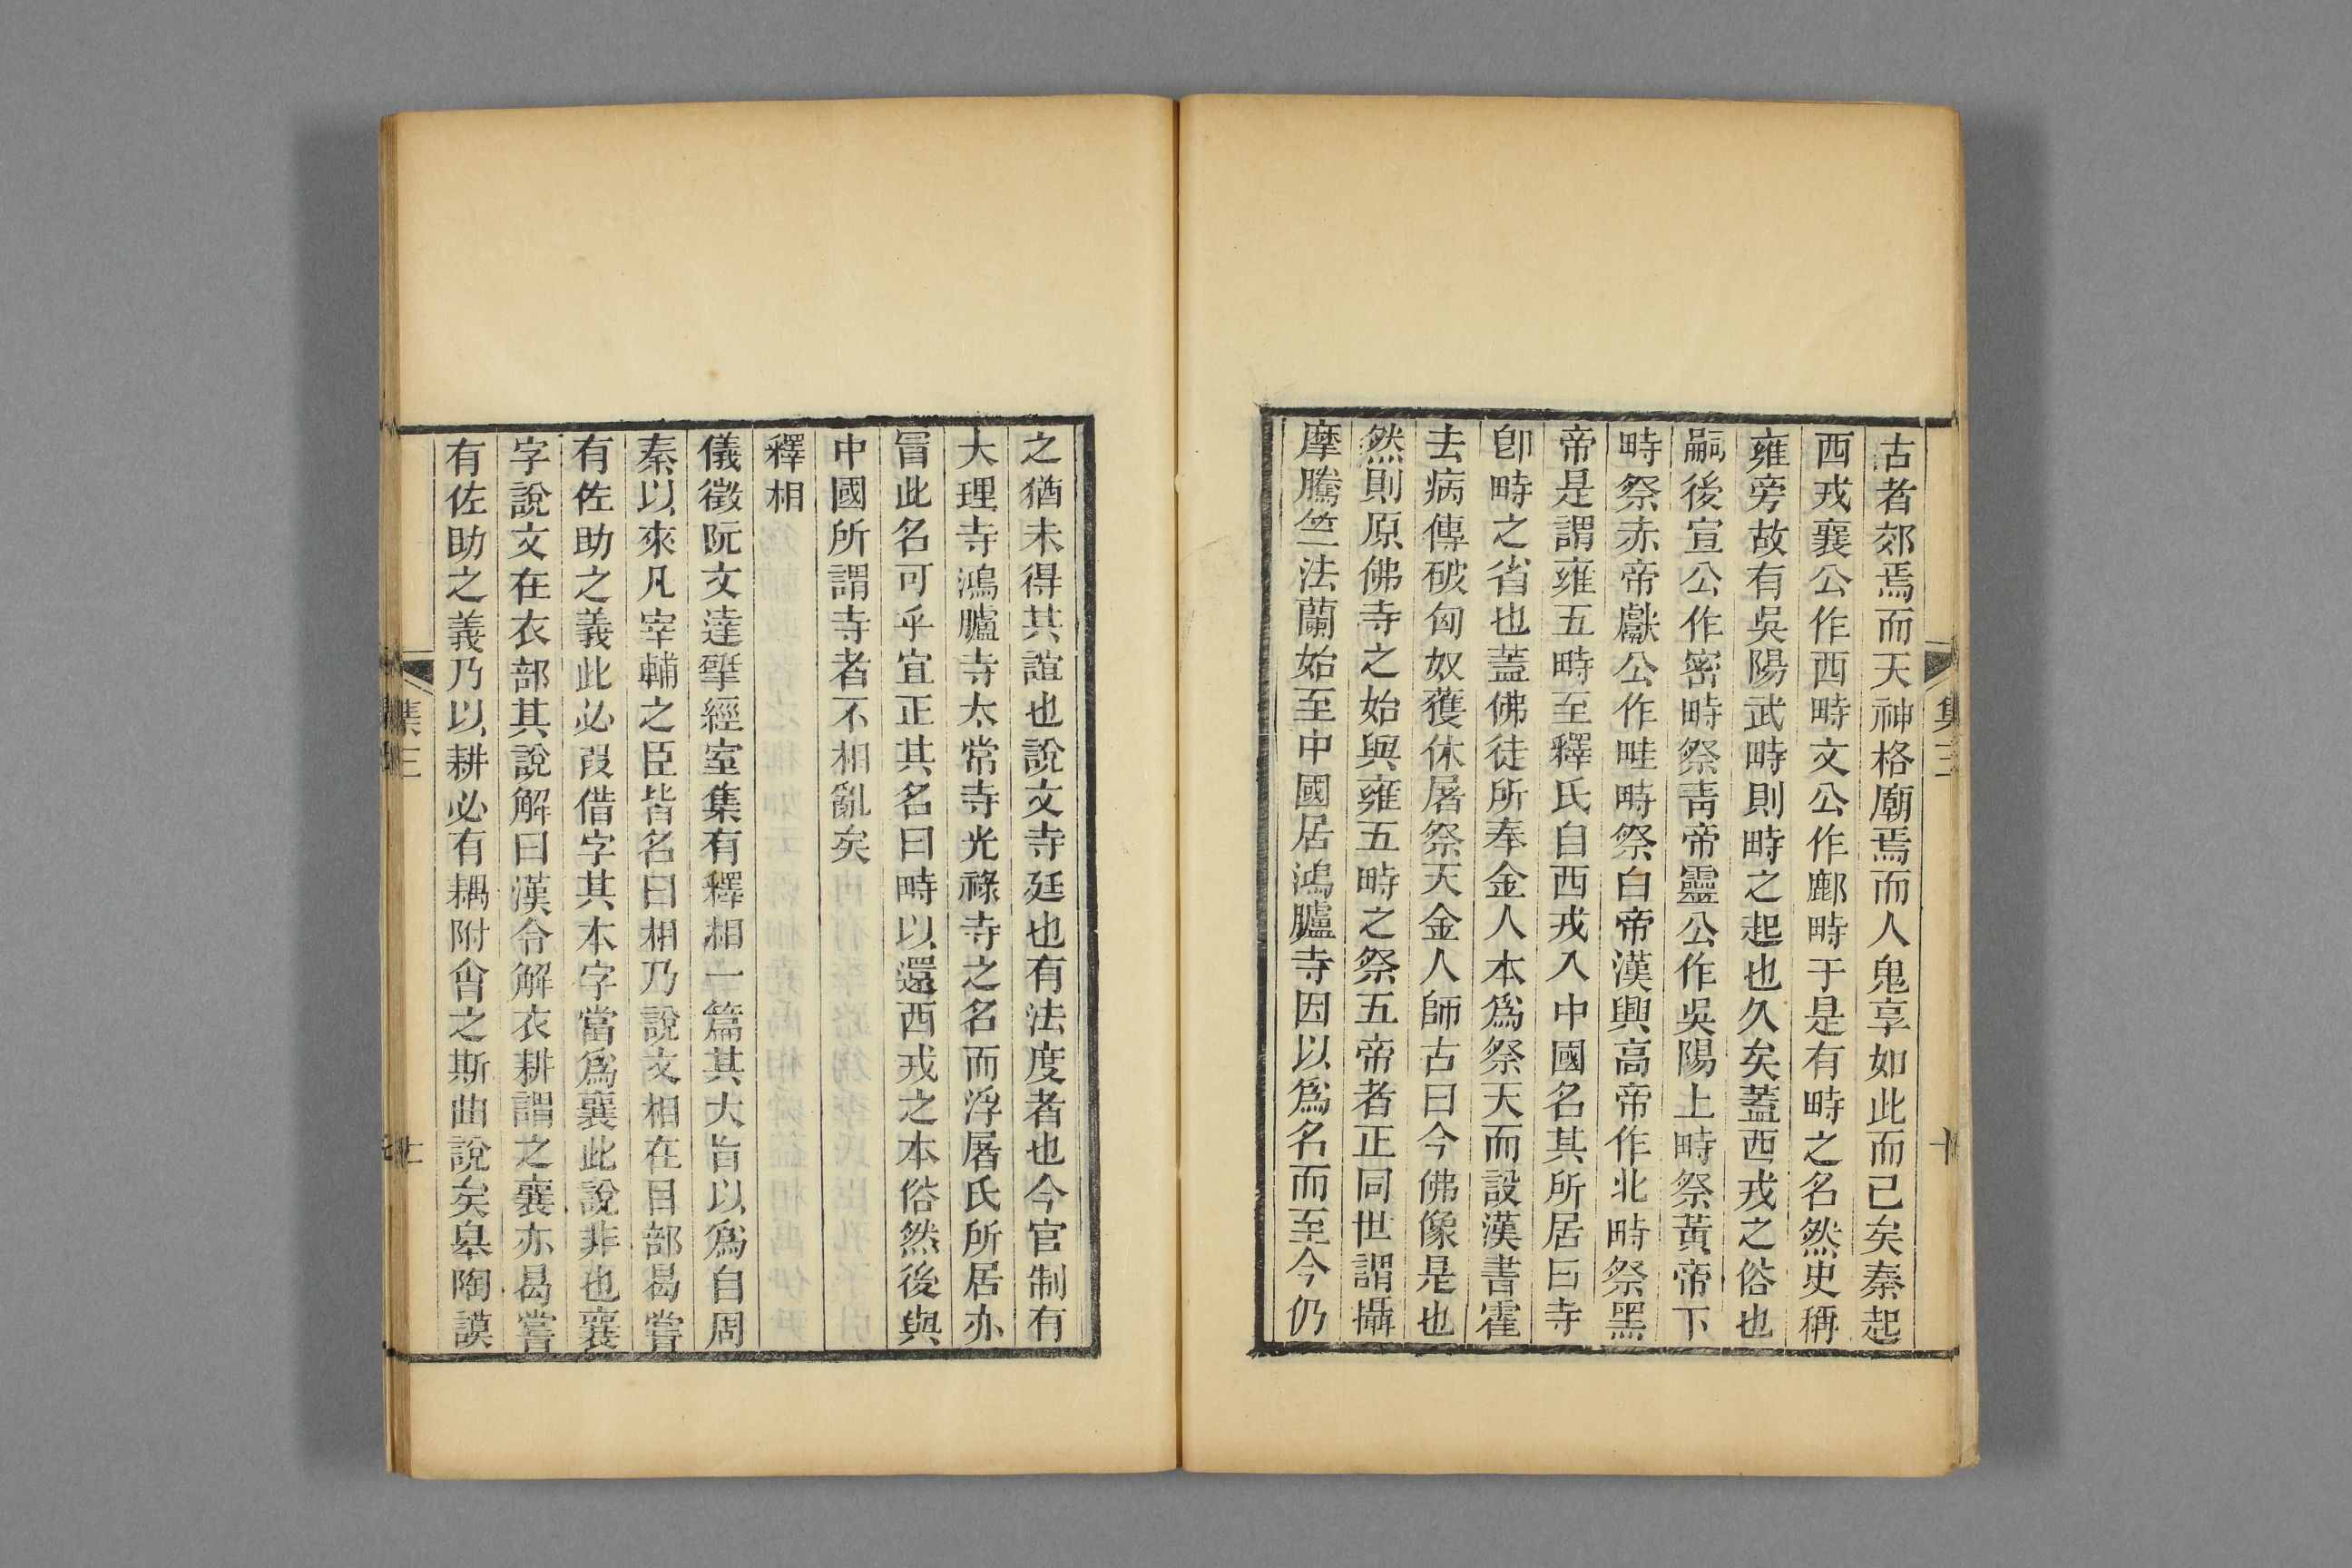 古者郊焉而天神格廟焉而人鬼享如此而已矣秦起
西戎襄公作西畤文公作鄜畤于是有畤之名然史稱
雍旁故有吳陽武畤則畤之起也久矣蓋西戎之俗也
嗣後宣公作密畤祭靑帝靈公作吳陽上畤祭黃帝下
畤祭赤帝獻公作畦畤祭白帝漢興高帝作北畤祭黑
帝是謂雍五畤至釋氏自西戎入中國名其所居曰寺
卽畤之省也蓋佛徒所奉金人本爲祭天而設漢書霍
去病傳破匈奴獲休屠祭天金人師古曰今佛像是也
然則原佛寺之始與雍五畤之祭五帝者正同世謂攝
摩騰竺法蘭始至中國居鴻臚寺因以爲名而至今仍
之猶未得其誼也說文寺廷也有法度者也今官制有
大理寺鴻臚寺太常寺光祿寺之名而浮屠氏所居亦
冒此名可乎宜正其名曰畤以還西戎之本俗然後與
中國所謂寺者不相亂矣
釋相
儀徵阮文達揅經室集有釋相一篇其大旨以爲自周
秦以來凡宰輔之臣皆名曰相乃說文相在目部曷嘗
有佐助之義此必叚借字其本字當爲襄此說非也襄
字說文在衣部其說解曰漢令解衣耕謂之襄亦曷嘗
有佐助之義乃以耕必有耦附會之斯曲說矣皋陶謨
集三
十
集三